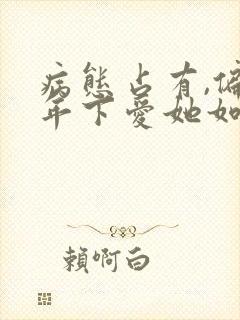 病態占有,偏
年下愛她如
賴啊白